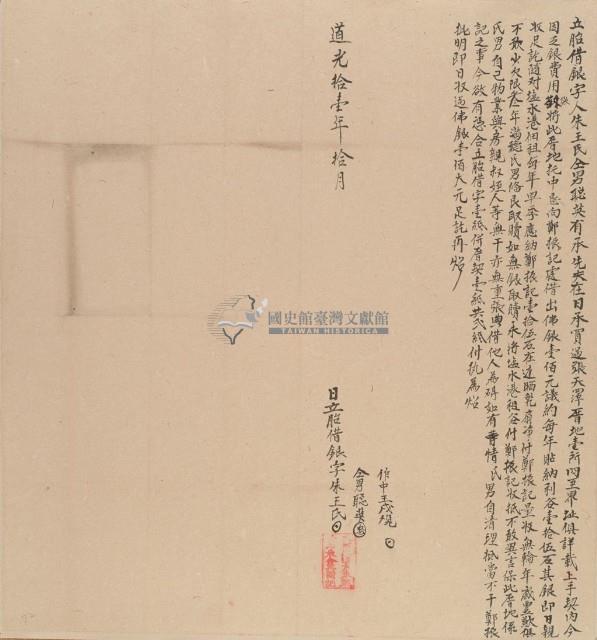 立胎借銀字人朱王氏仝男聪英有承先夫在日承買過張天澤厝地壹所四至界址俱詳載上手契內今
因乏銀費用將此厝地托中忌向鄭振記處借出佛銀壹佰元議約每年貼納利谷壹拾伍石其銀即日親
收足訖隨对塩水港佃租每年早季應納鄭振記壹拾伍石在達晒乾扇净付鄭振記量收無論年歲豐歉俱
不敢少欠限叁年滿聴氏男俻艮取贖如無銀取贖永將塩水港租谷付鄭振記收抵不敢異言保此厝地係
氏男自己物業與房親叔姪人等無干亦無重張典借他人為碍如有情氏男自清理抵當不干鄭振
記之事今欲有憑合立胎借字壹紙併厝契壹紙共弍紙付执為炤
批明即日收過佛銀壹佰大元足訖再炤
道光拾壹年拾月
作中王
仝男聪英
日立胎借銀字朱王氏
國史館臺灣文獻館
TAIWAN HISTORICA